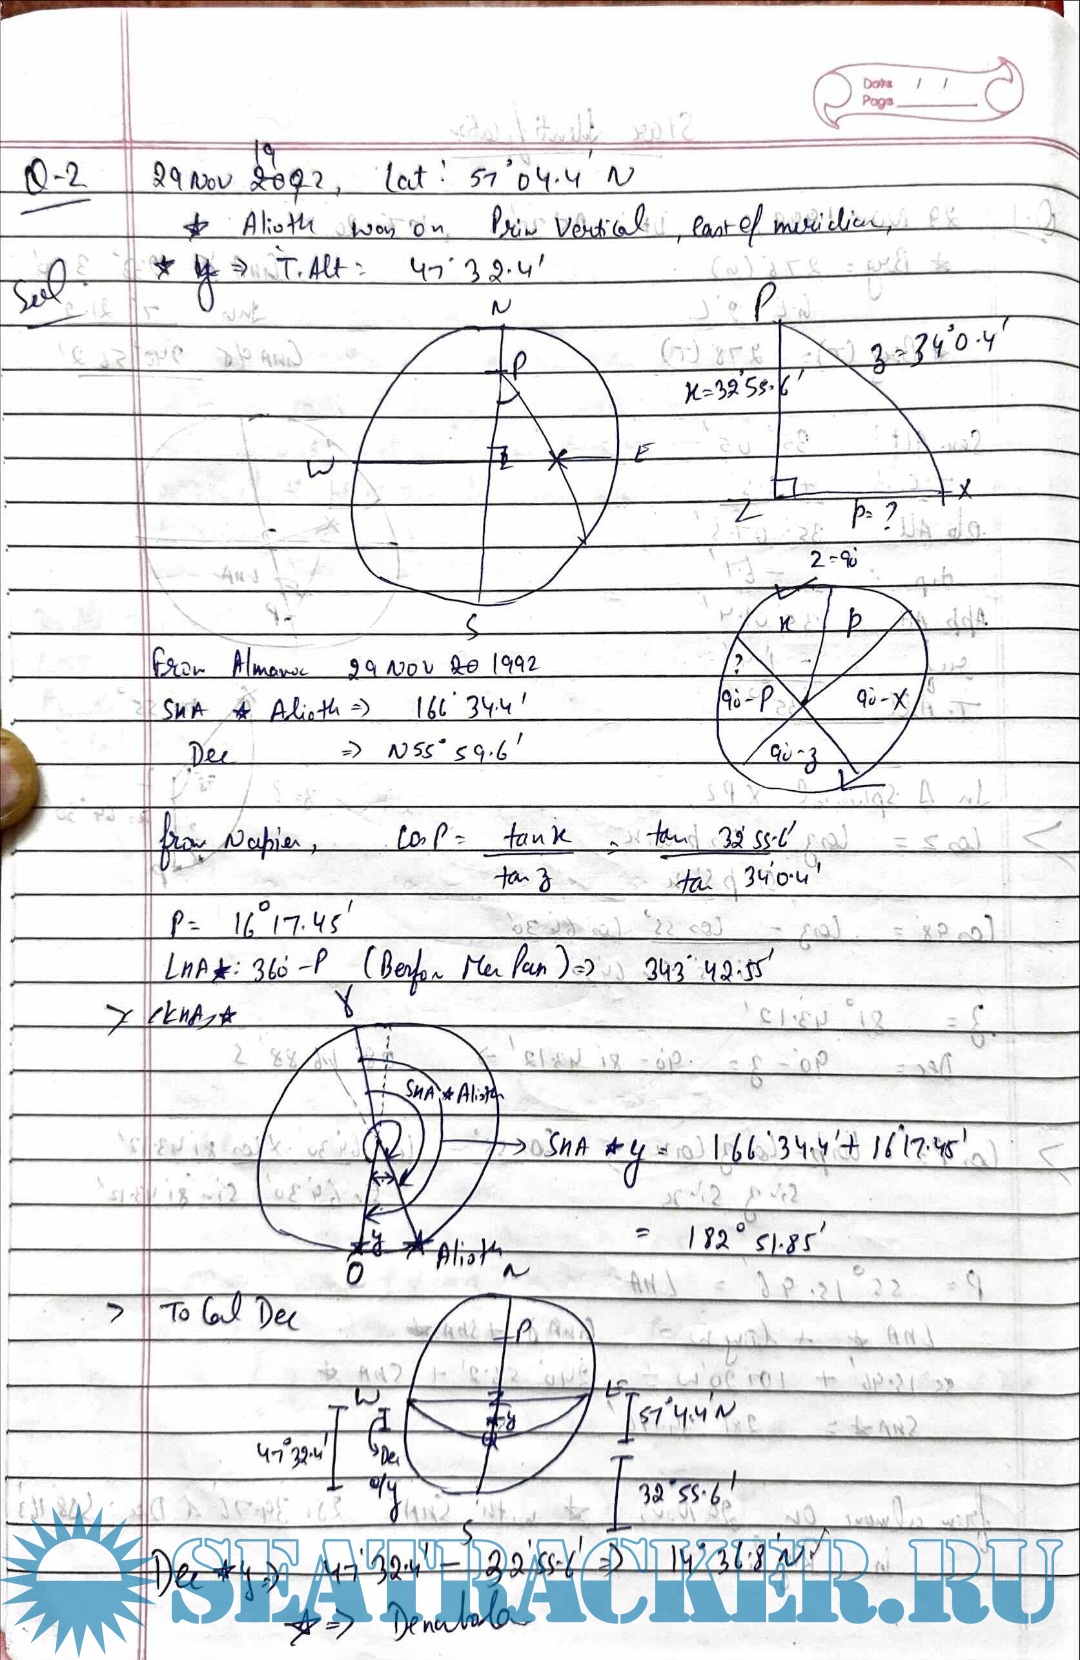 Date / /
Page
Q-2 29 Nov 1992, Lat: 57° 04.4' N
* Alioth was on Prim Vertical, east of meridian,
Sol * y ⇒ T. Alt = 47° 32.4'
N
P
W Z E
S
P
x = 32°55.6'
z = 34°0.4'
Z X
p = ?
Z = 90
x p
?
90-P 90-X
90-z
From Almanac 29 Nov 20 1992
SHA * Alioth ⇒ 166° 34.4'
Dec ⇒ N 55° 59.6'
from Napier, Cos P = tan x / tan z = tan 32°55.6' / tan 34°0.4'
P = 16° 17.45'
LHA *: 360 - P (Before Mer Pas) ⇒ 343° 42.55'
> LHA *
♈
SHA * Alioth
SHA * y = 166°34.4' + 16°17.45'
= 182° 51.85'
* y * Alioth
O
> To Cal Dec
N
P
W Z E
* y
Q
47° 32.4'
Dec
o/y
57° 4.4' N
32° 55.6'
S
Dec * y ⇒ 47° 32.4' - 32° 55.6' ⇒ 14° 36.8' N
* ⇒ Denebola
SEATRACKER.RU